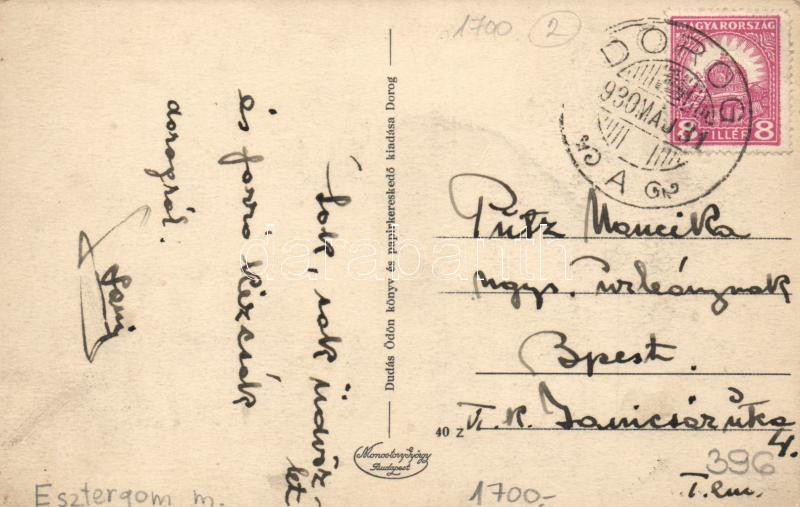 1700 2
MAGYARORSZÁG
8 FILLÉR 8
DOROG
930 MÁJ 31
A
Sok, sok üdvöz-
let
és forró kézcsók
dorogról.
Dudás Ödön könyv és papirkereskedő kiadása Dorog
Pütz Mancika
ngys. urleánynak
Bpest.
V. K. Janicsár utka
4.
I. em.
40 Z
Monostory György
Budapest
396
1700.-
Esztergom m.
darabanth